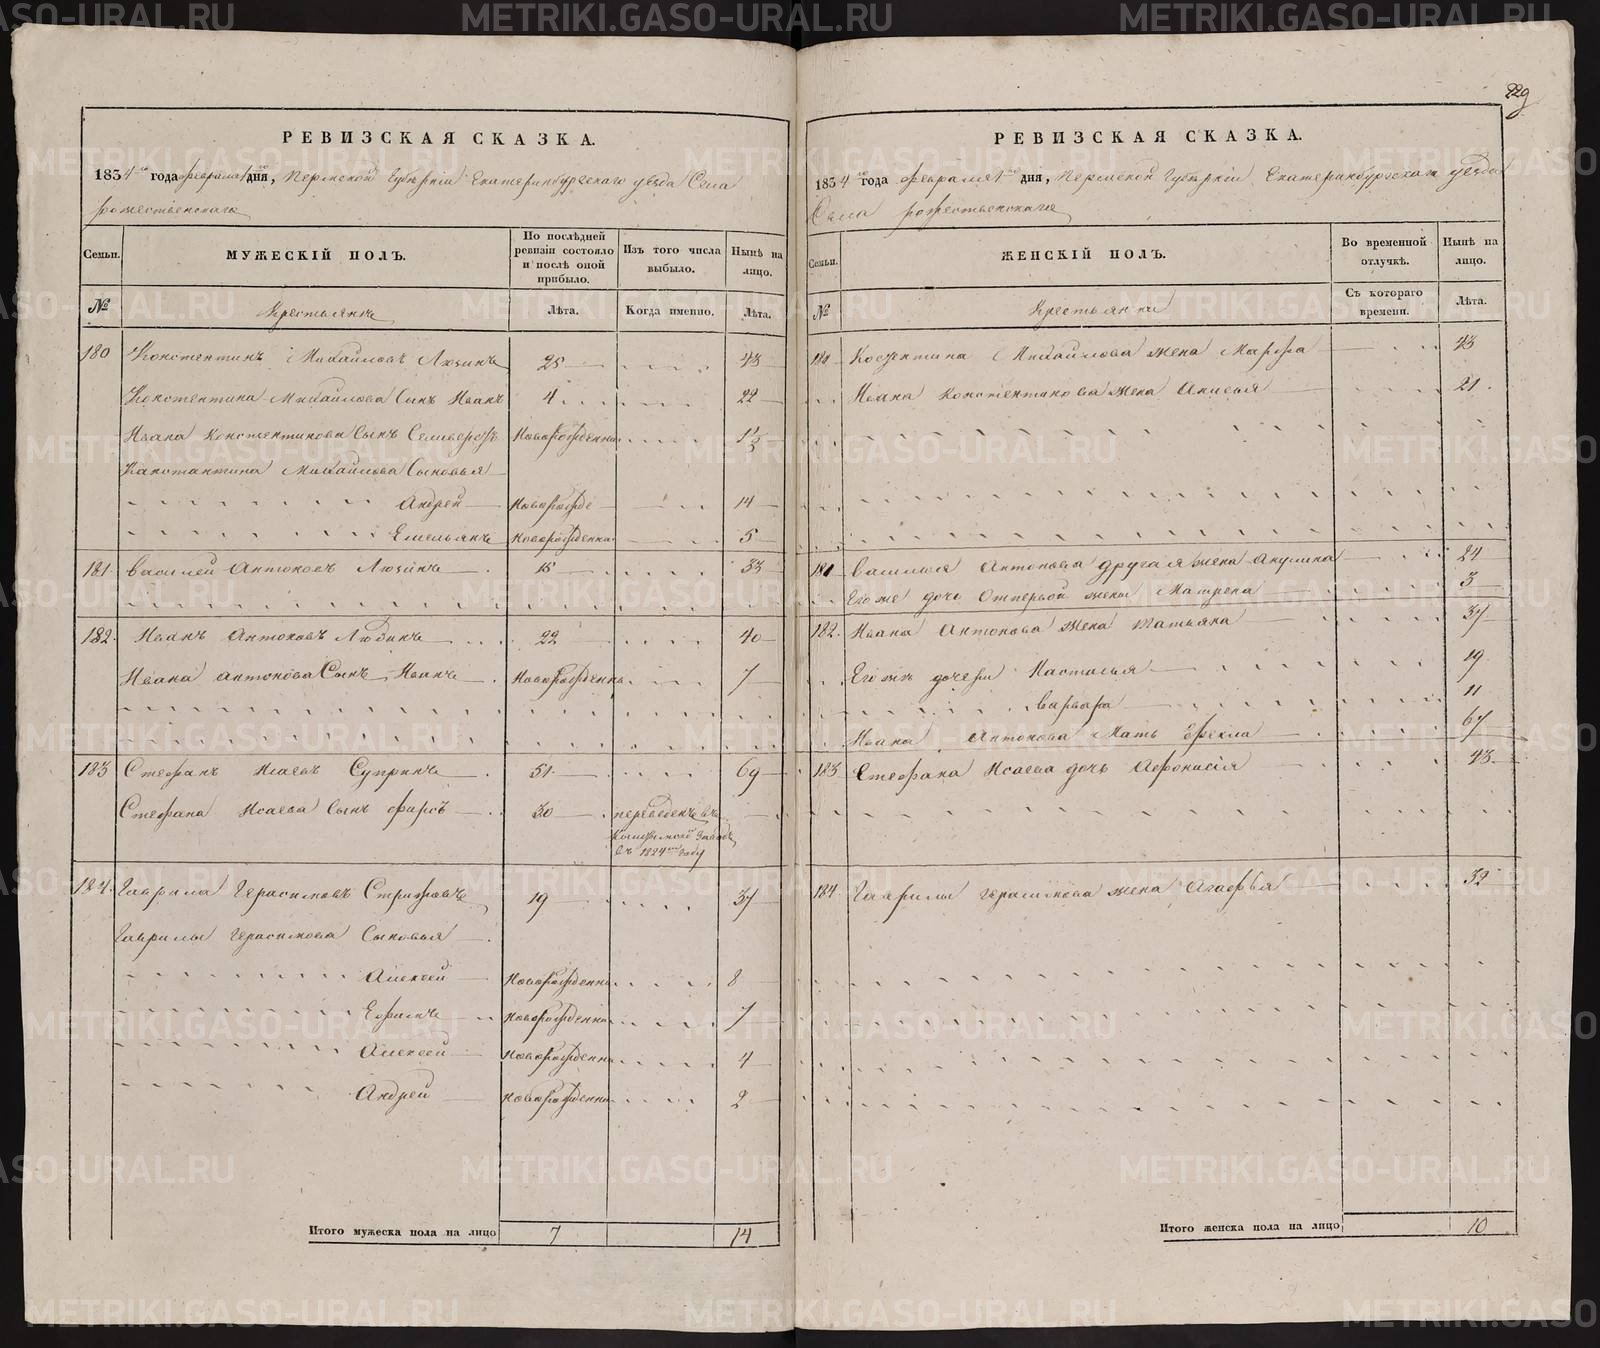 229
РЕВИЗСКАЯ СКАЗКА.
1834 го года февраля 1 го дня, Пермской Губернии Екатеринбургского уезда Села
рожественскаго
Семьи. МУЖЕСКІЙ ПОЛЪ. По послѣдней ревизіи состояло и послѣ оной прибыло. Изъ того числа выбыло. Нынѣ на лицо.
№ Крестьянъ Лѣта. Когда именно. Лѣта.
180 Констентинъ Михайловъ Люзинъ 25 43
Констентина Михайлова Сынъ Иванъ 4 22
Ивана Констентинова Сынъ Новорожденны 1½
Канстантина Михайлова Сыновья
Андрей Новорожде 14
Емельянъ Новорожденны 5
181 Василей Антоновъ Люзинъ 15 33
182. Иванъ Антоновъ Люзинъ 22 40
Ивана антонова Сынъ Иванъ Новорожденны 7
183 Стефанъ Исаевъ Супринъ 51 69
Стефана Исаева Сынъ фирсъ 30 переведенъ въ
Заводъ
въ 1824 году
184. Гаврила Герасимовъ Стрижовъ 19 37
Гаврилы Герасимова Сыновья
Алексей Новорожденны 8
Ефимъ Новорожденны 7
Алексей Новорожденны 4
Андрей Новорожденны 2
Итого мужеска пола на лицо 7 14
РЕВИЗСКАЯ СКАЗКА.
1834 го года февраля 1 го дня, Пермской Губернии Екатеринбургскаго уезда
Села рожественскаго
Семьи. ЖЕНСКІЙ ПОЛЪ. Во временной отлучкѣ. Нынѣ на лицо.
№ Крестьянки Съ котораго времени. Лѣта.
180 Костентина Михайлова жена Марфа 43
Ивана Констентинова жена Анисья 21.
181 Василья Антонова другая жена Акулина 24
Его же дочь Отпервой жены Матрена 3
182. Ивана Антонова жена Татьяна 37
Его же дочери Настасья 19
варвара 11
Ивана Антонова Мать Фекла 67
183 Стефана Исаева дочь Афонасія 43
184 Гаврилы Герасимова жена Агафья 32
Итого женска пола на лицо 10
METRIKI.GASO-URAL.RU